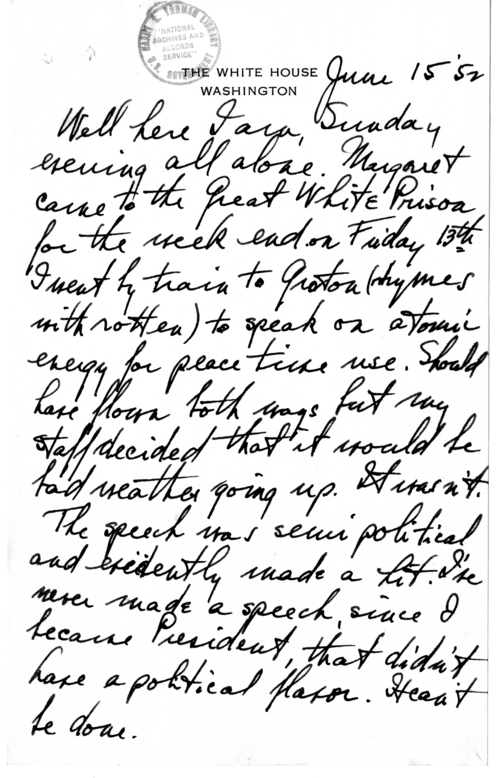 HARRY S. TRUMAN LIBRARY
"NATIONAL
ARCHIVES AND
RECORDS
SERVICE"
U.S. GOVERNMENT
THE WHITE HOUSE
WASHINGTON
June 15 '52
Well here I am, Sunday
evening all alone. Margaret
came to the Great White Prison
for the week end on Friday 13th
I went by train to Groton (rhymes
with rotten) to speak on atomic
energy for peace time use. Should
have flown both ways but my
staff decided that it would be
bad weather going up. It wasn't.
The speech was semi political
and evidently made a hit. I've
never made a speech, since I
became President, that didn't
have a political flavor. It can't
be done.